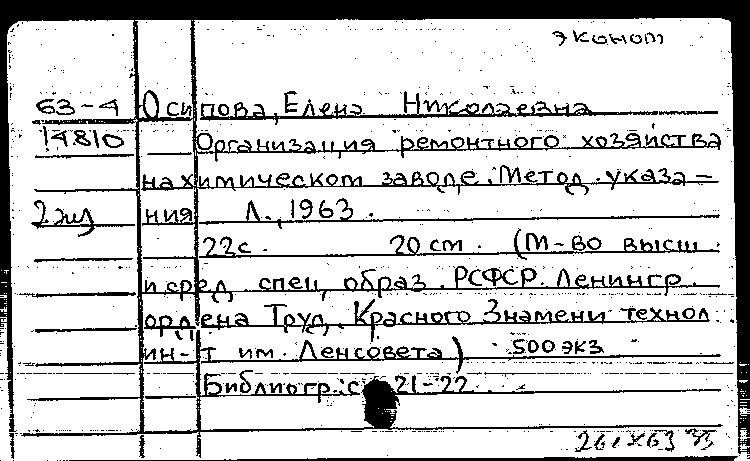 эконом
63-4 Осипова, Елена Николаевна
14810 Организация ремонтного хозяйства
на химическом заводе. Метод. указа-
2 экз ния Л., 1963.
22с. 20 см. (М-во высш.
и сред. спец. образ. РСФСР. Ленингр.
ордена Труд. Красного Знамени технол.
ин-т им. Ленсовета) 500 экз
Библиогр.: с. 21-22.